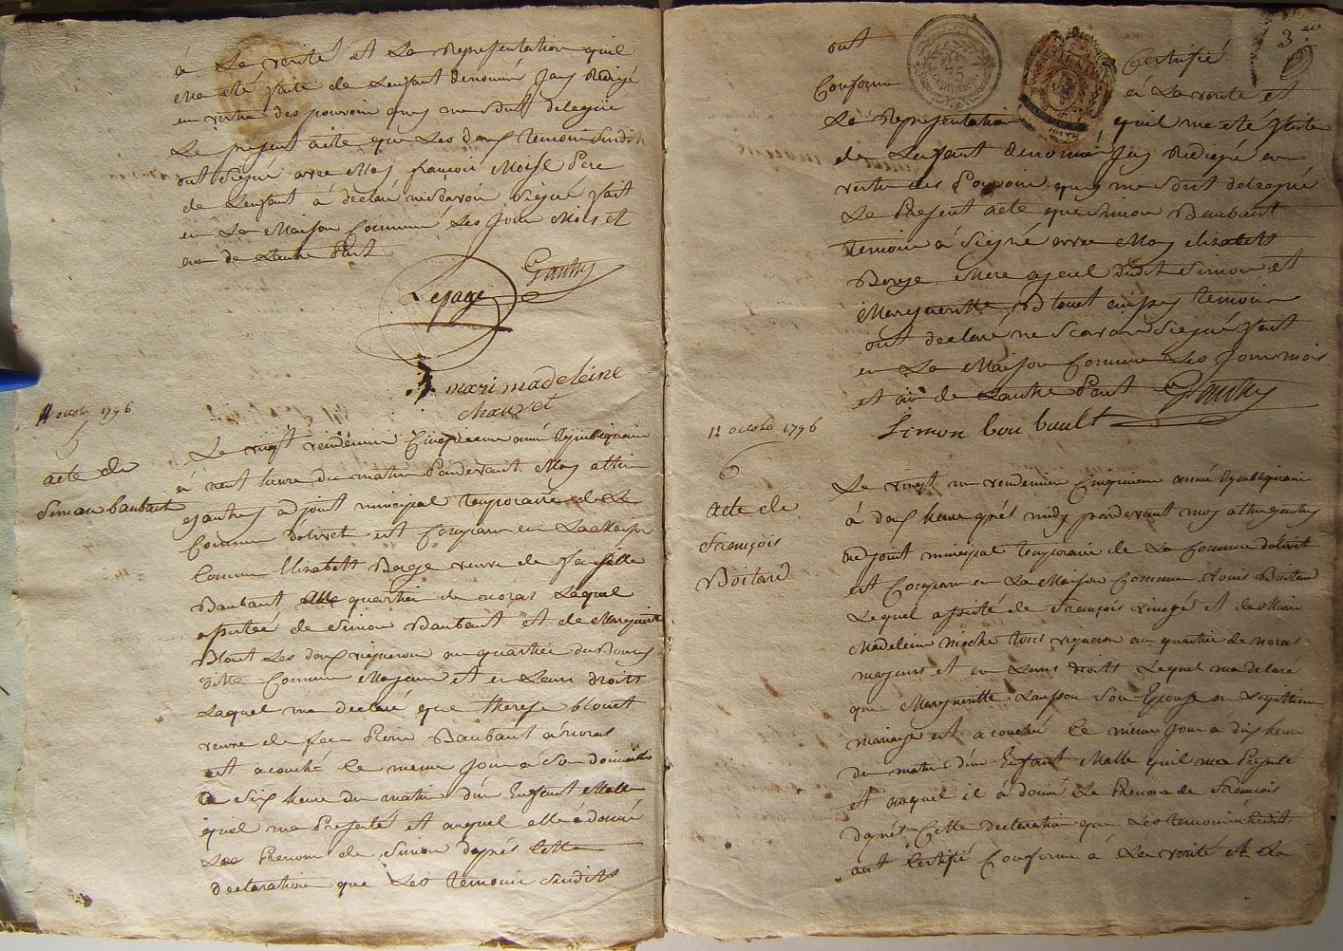 à La verité et La Representation quil
ma eté faite de Lenfant denomé Jay Redigé
en vertu des pouvoir quy me sont delegué
Le present acte que Les deux temoin Susdit
ont Signé avec Moy françois Moise Pere
de Lenfant à declaré ne Savoir Signé fait
en La Maison Commune Les Jour Mois et
an de Lautre Part
Gautry
Lepage
mari madeleine
chauvet
11 octobre 1796
5
acte de
Simon baubault
Le vingt vendemier Cinquieme anné Republiquaine
à neuf heure du matin Pardevant Moy athin
gautry adjoint municipal temporaire de La
Commune dolivet est Comparu en La Maison
Commune Elisabett Berge veuve de feu
Baubaut quartier de noras Laquel
assistée de Simon Baubaut et de Margueritte
Blouet Les deux vigneron au quartier du Bourg
dite Commune Majeur et en Leurs droits
Laquel ma declaré que therese blouet
veuve de feu Pierre Baubaut à noras
est acouché Ce meme Jour à Son domicille
à Six heure du matin dun Enfant Malle
quel ma Presenté et auquel elle à donné
Le Prenom de Simon daprés Cette
declaration que Les temoin Susdits
3
ont Certifié
Conforme à La verité et
La Representation quil ma eté faite
de Lenfant denomé Jay Redigé en
vertu des Pouvoir quy me sont delegué
Le Present acte que Simon Baubaut
temoin à Signé avec Moy elizabett
Berge Mere ayeul dudit Simon et
Margueritte Blouet aussy temoin
ont declaré ne Scavoir Signé fait
en La Maison Commune Les Jour mois
et an de Lautre Part Gautry
Simon boubault
12 octobre 1796
6
acte de
François
Boitard
Le vingt un vendemier Cinquieme anné Republiquaine
à deux heure aprés midy pardevant moy athin gautry
adjoint municipal temporaire de La Commune dolivet
est Comparu en La Maison Commune Louis Boitard
Lequel assisté de François et de Marie
Madeleine tous vigneron au quartier de noras
majeurs et en Leurs droits Lequel ma declaré
que Margueritte Son Epouse en Legittime
mariage est acouché Ce meme Jour à dix heure
du matin dun Enfant Malle quil ma Presenté
et auquel il à donné Le Prenom de François
daprét Cette declaration que Les temoin Susdit
ont Certifié Conforme à La verité et La